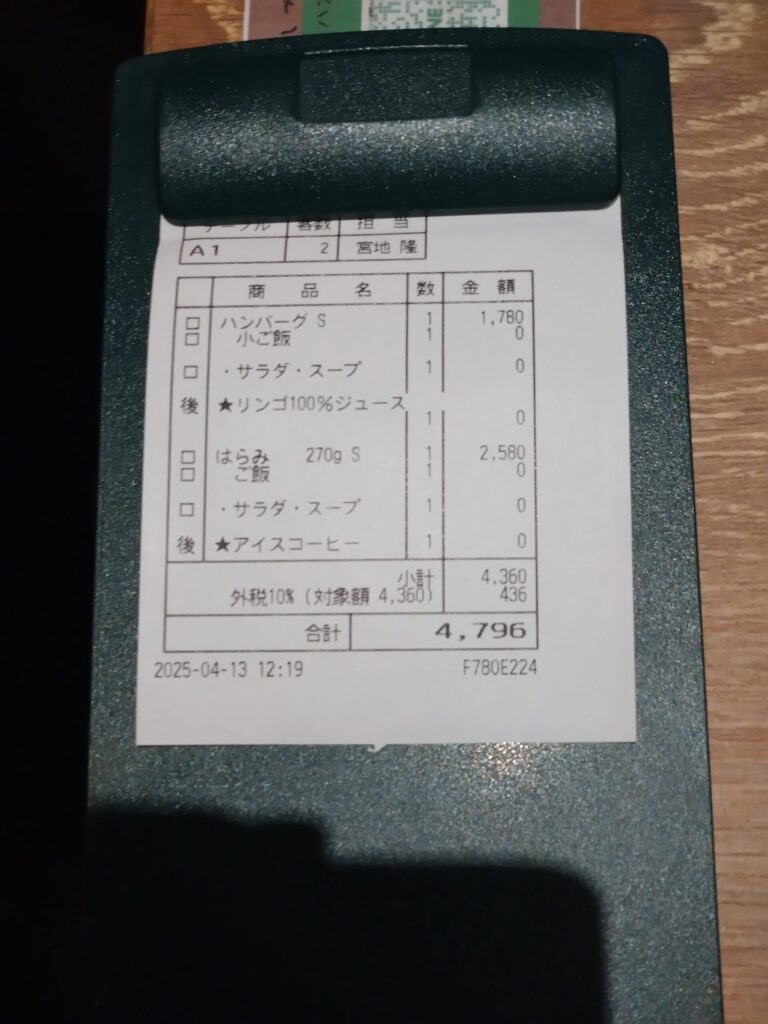 テーブル 客数 担当
A1 2 宮地 隆
商品名 数 金額
□ ハンバーグ S 1 1,780
□ 小ご飯 1 0
□ ・サラダ・スープ 1 0
後 ★リンゴ100%ジュース
1 0
□ はらみ 270g S 1 2,580
□ ご飯 1 0
□ ・サラダ・スープ 1 0
後 ★アイスコーヒー 1 0
小計 4,360
外税10% (対象額 4,360) 436
合計 4,796
2025-04-13 12:19 F780E224